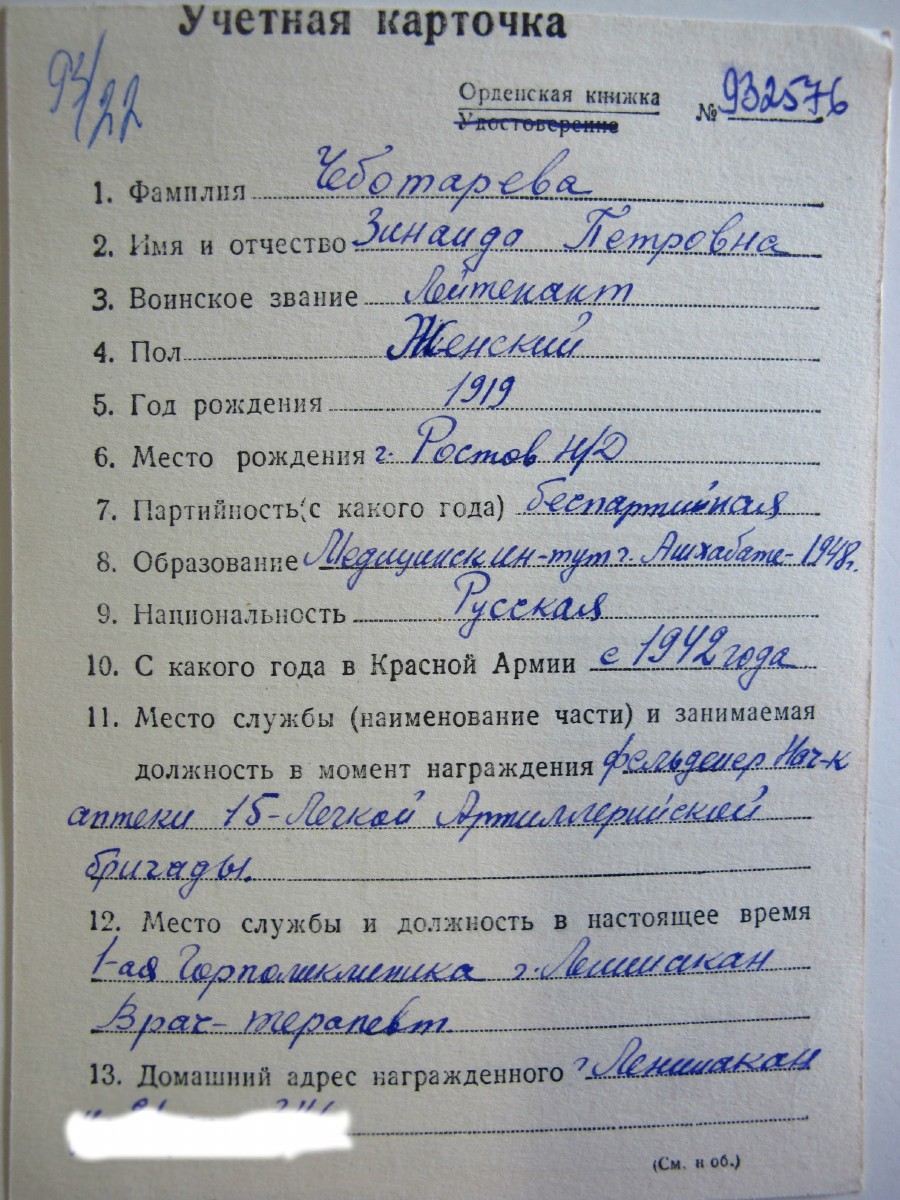 Учетная карточка
93/22
Орденская книжка
Удостоверение
№ 932576
1. Фамилия Чеботарева
2. Имя и отчество Зинаида Петровна
3. Воинское звание Лейтенант
4. Пол Женский
5. Год рождения 1919
6. Место рождения г. Ростов Н/Д
7. Партийность (с какого года) беспартийная
8. Образование Медицинск ин-тут г. Ашхабате - 1948г.
9. Национальность Русская
10. С какого года в Красной Армии с 1942 года
11. Место службы (наименование части) и занимаемая
должность в момент награждения фельдшер Нач-к
аптеки 15-Легкой Артиллерийской
бригады.
12. Место службы и должность в настоящее время
1-ая Горполиклиника г. Ленинакан
Врач-терапевт
13. Домашний адрес награжденного г Ленинакан
(См. н об.)